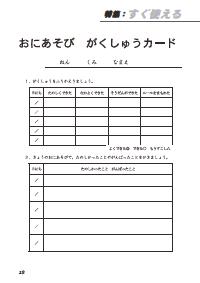 特集：すぐ使える
おにあそび がくしゅうカード
ねん くみ なまえ
1．がくしゅうをふりかえりましょう。
たのしくできた なかよくできた そうだんができた ルールをまもれた
／
／
／
／
／
よくできた◎ できた○ もうすこし△
2．きょうのおにあそびで、たのしかったことやがんばったことをかきましょう。
たのしかったこと がんばったこと
／
／
／
／
／
28